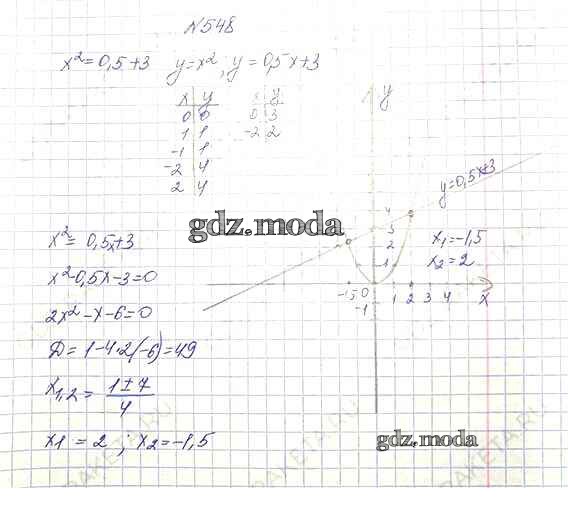 №548
x²=0,5+3 y=x², y=0,5x+3
x y x y
0 0 0 3
1 1 -2 2
-1 1
-2 4
2 4
y
y=0,5x+3
4
3
2
1
x₁=-1,5
x₂=2
-1,5 0 1 2 3 4 x
-1
gdz.moda
x²=0,5x+3
x²-0,5x-3=0
2x²-x-6=0
D=1-4·2(-6)=49
x₁,₂= 1±7
4
x₁=2; x₂=-1,5
gdz.moda
PAKETA.RU
PAKETA.RU